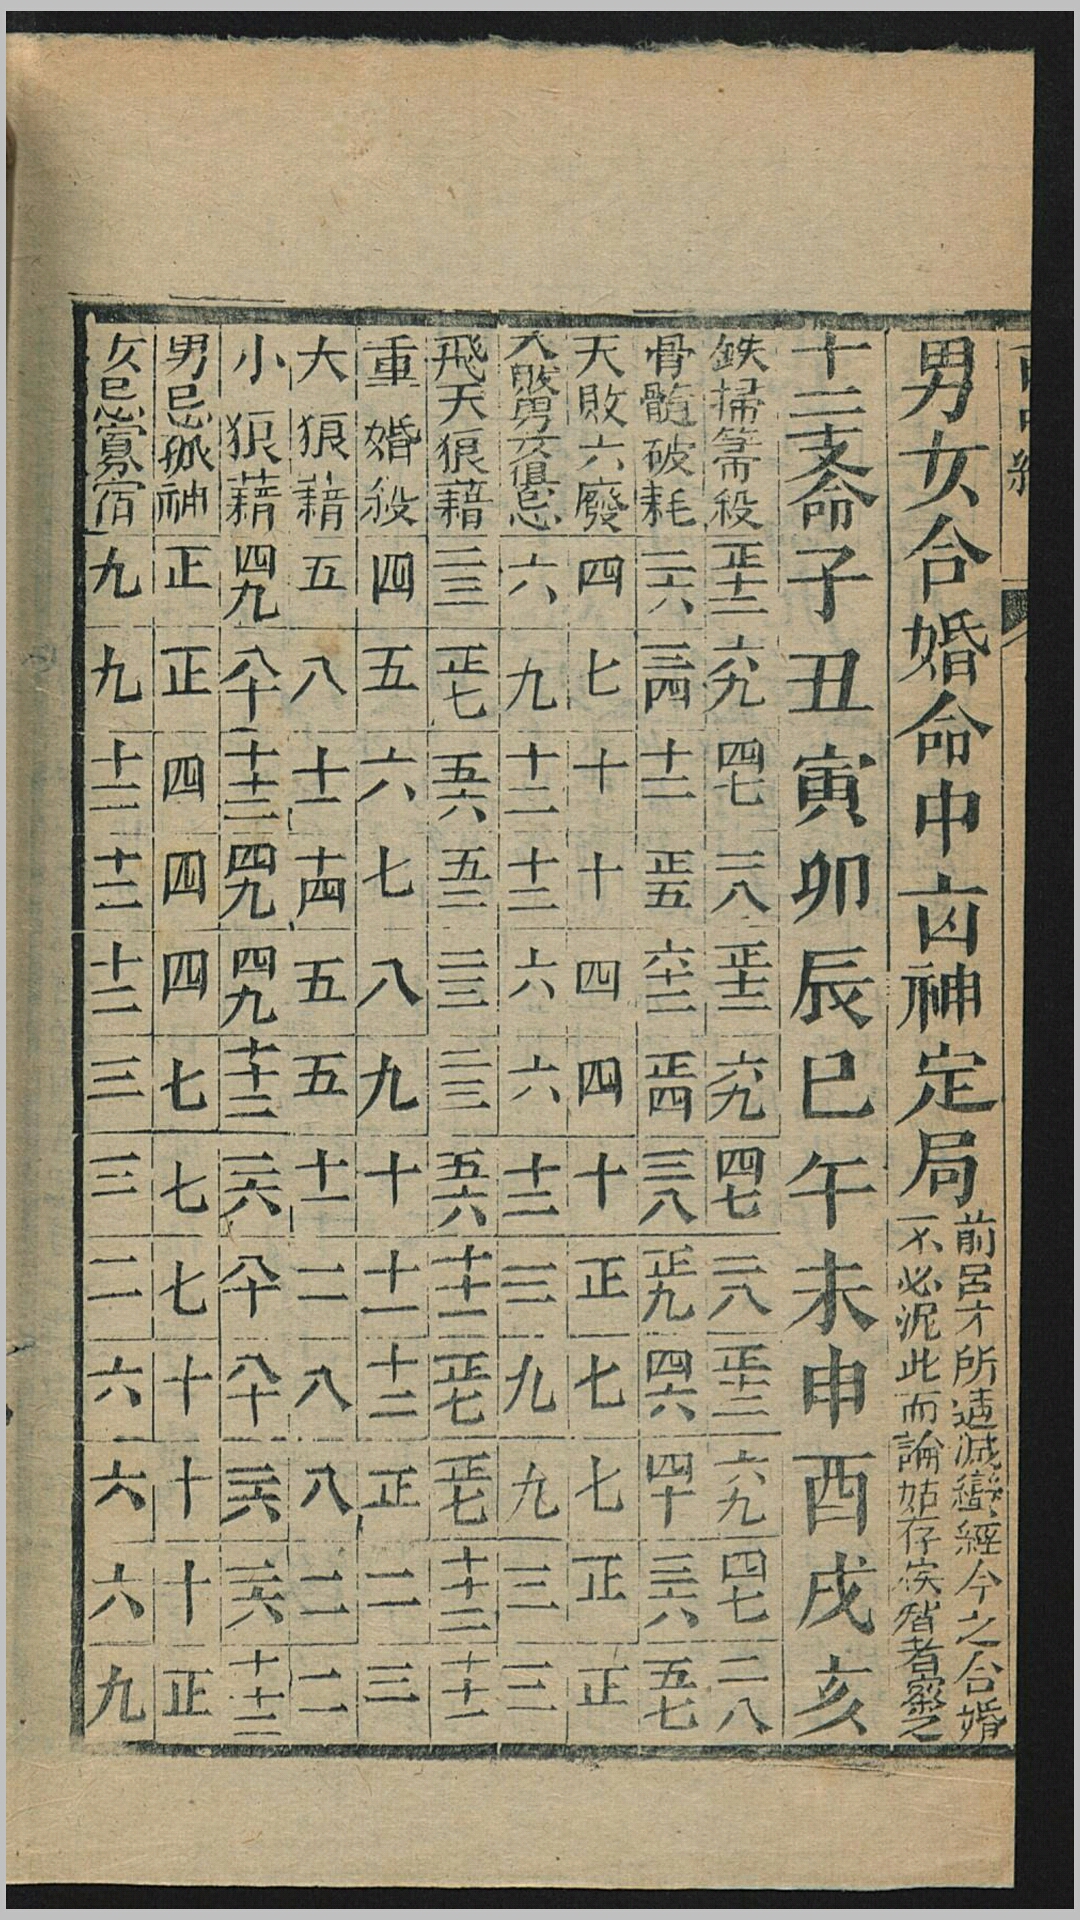 男女合婚命中凶神定局
前呂才所造滅蠻經今之合婚
不必泥此而論姑存俟智者察之
十二支命 子 丑 寅 卯 辰 巳 午 未 申 酉 戌 亥
鉄掃箒殺 正十二 六九 四七 二八 正十二 六九 四七 二八 正十二 六九 四七 二八
骨髓破耗 二六 三四 十二 正五 六十二 正四 三八 正九 四六 四十 三六 五七
天敗六廢 四 七 十 十 四 四 十 正 七 七 正 正
大敗男女俱忌 六 九 十二 十二 六 六 十二 三 九 九 三 三
飛天狼藉 二三 正七 五六 五二 二三 二三 五六 十十二 正七 正七 十十二 十十一
重婚殺 四 五 六 七 八 九 十 十一 十二 正 二 三
大狼藉 五 八 十一 十四 五 五 十一 二 八 八 二 二
小狼藉 四九 八十 十十二 四九 四九 十十二 二六 八十 八十 三六 三六 十十二
男忌孤神 正 正 四 四 四 七 七 七 十 十 十 正
女忌寡宿 九 九 十二 十二 十二 三 三 二 六 六 六 九